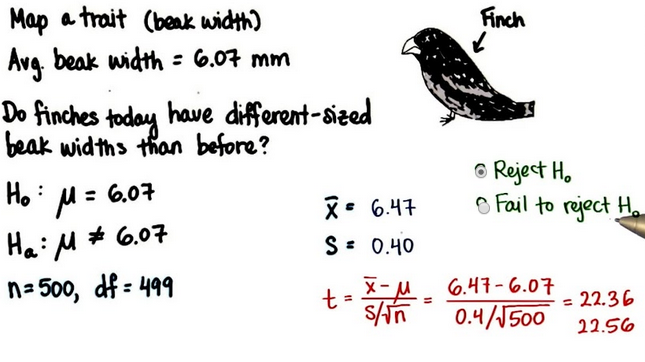 Map a trait (beak width)
Avg. beak width = 6.07 mm
Finch
Do finches today have different-sized
beak widths than before?
H₀: μ = 6.07
Hₐ: μ ≠ 6.07
n=500, df = 499
x̄ = 6.47
S = 0.40
Reject H₀
Fail to reject H₀
t = (x̄ - μ)/(S/√n) = (6.47 - 6.07)/(0.4/√500) = 22.36
22.56